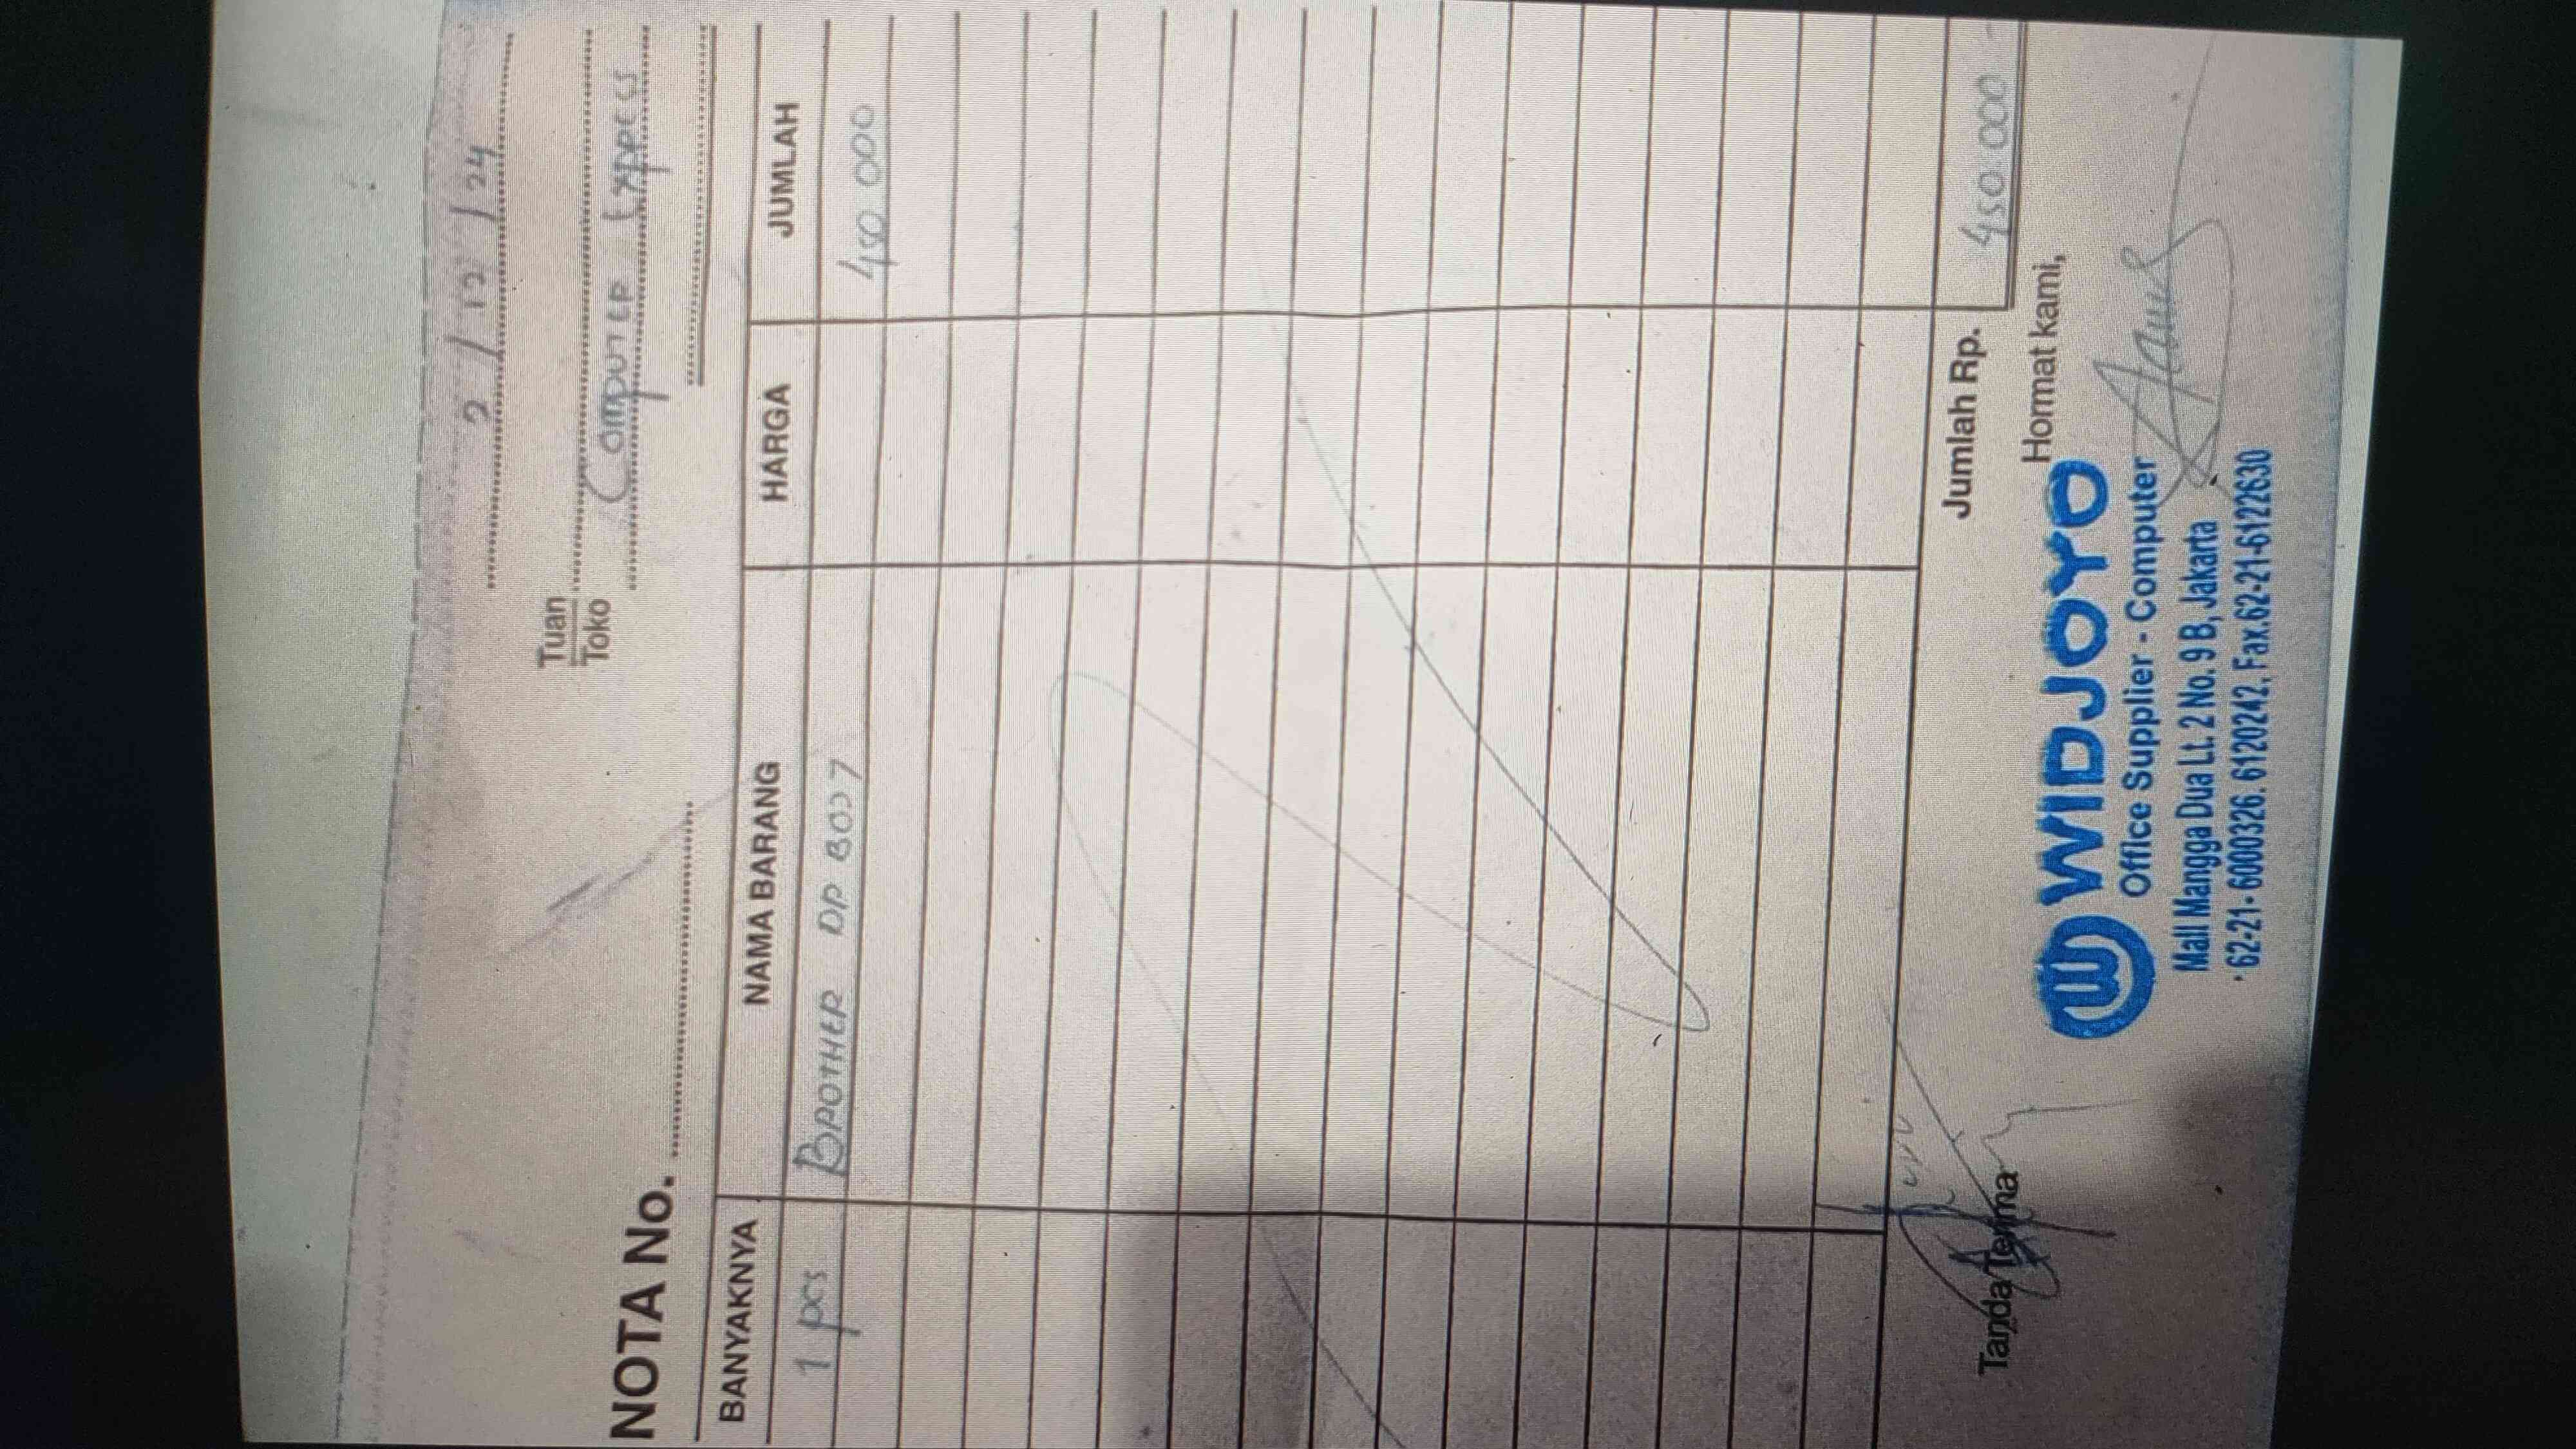 2 / 12 / 24
Tuan
Toko
Computer
NOTA No.
BANYAKNYA NAMA BARANG HARGA JUMLAH
1 pcs BROTHER DR 450 000
Jumlah Rp. 450 000
Tanda Terima Hormat kami,
WIDJOYO
Office Supplier - Computer
Mall Mangga Dua Lt. 2 No. 9 B, Jakarta
62-21- 6000326. 6120242, Fax.62-21-6122630